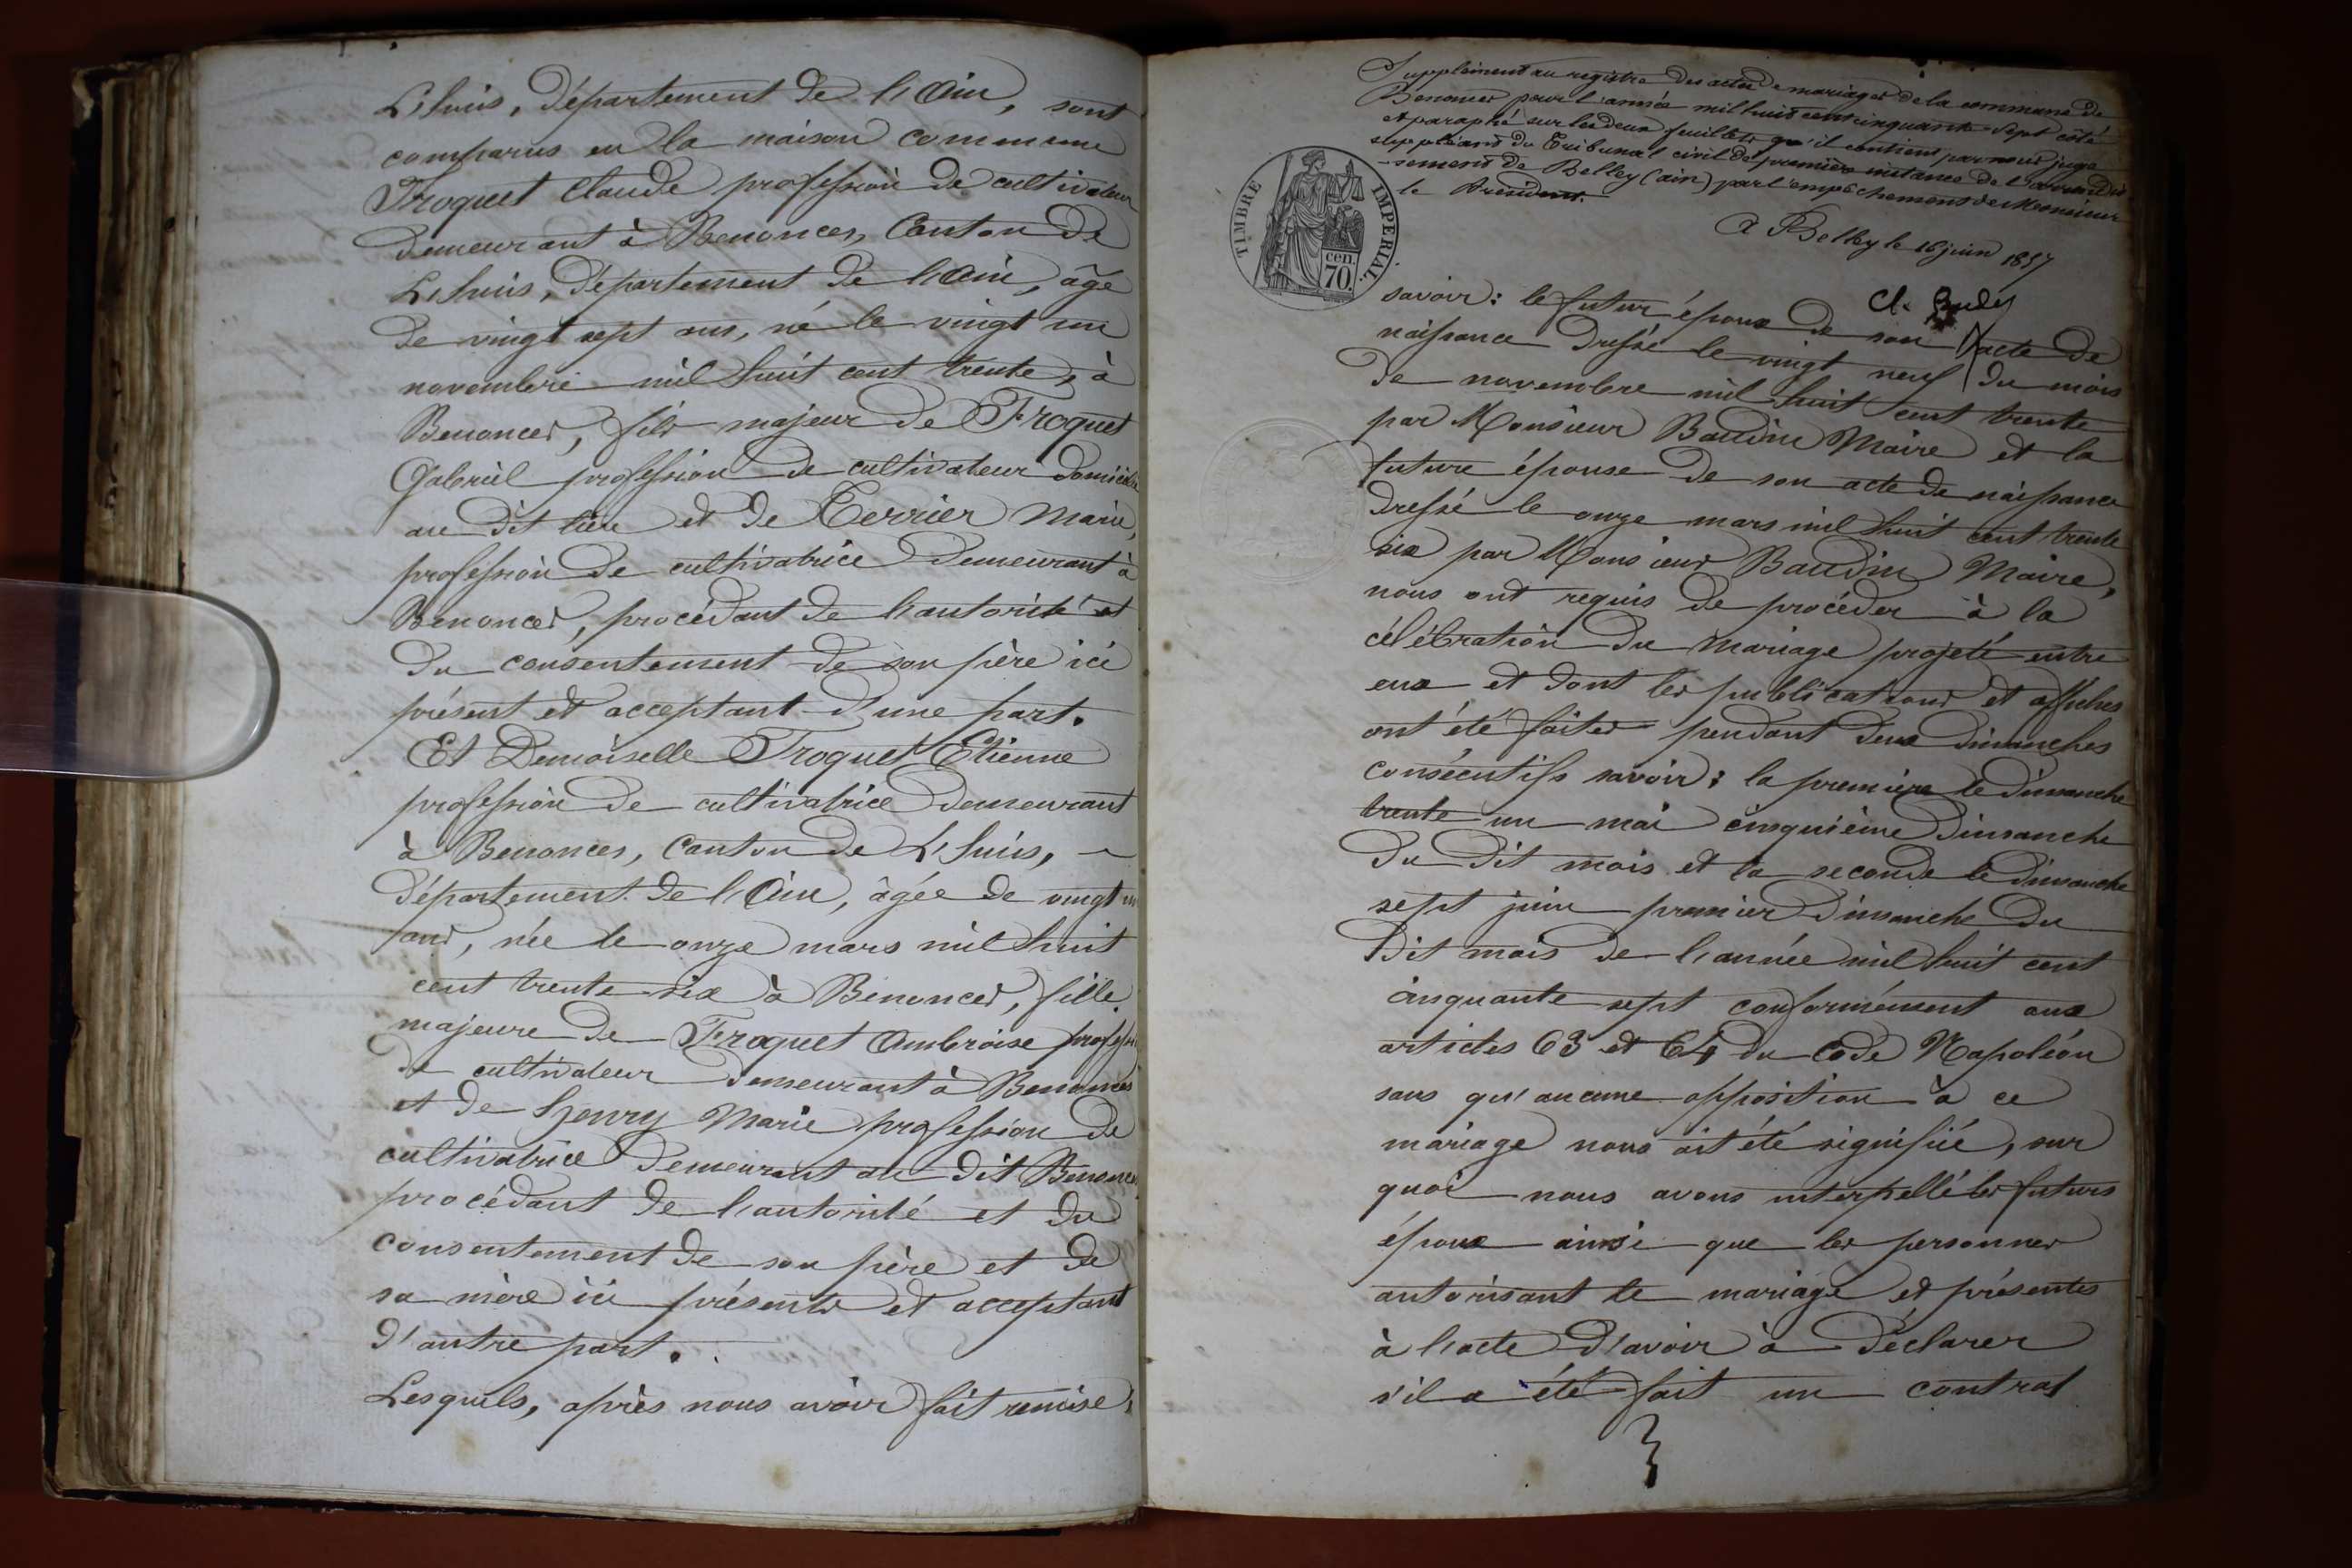 L'huis, département de l'Ain, sont
comparus en la maison commune
Troquet Claude profession de cultivateur
demeurant à Benonces, Canton de
L'huis, département de l'Ain, âgé
de vingt sept ans, né le vingt un
novembre mil huit cent trente, à
Benonces, fils majeur de Troquet
Gabriel profession de cultivateur domicilié
au dit lieu et de Terrier Marie,
profession de cultivatrice demeurant à
Benonces, procédant de l'autorité et
du consentement de son père ici
présent et acceptant d'une part.
Et Demoiselle Troquet Etienne
profession de cultivatrice demeurant
à Benonces, Canton de L'huis,
département de l'Ain, âgée de vingt un
ans, née le onze mars mil huit
cent trente six à Benonces, fille
majeure de Troquet Ambroise profession
de cultivateur demeurant à Benonces
et de Henry Marie profession de
cultivatrice demeurant au dit Benonces
procédant de l'autorité et du
consentement de son père et de
sa mère ici présents et acceptant
d'autre part.
Lesquels, après nous avoir fait remise,
Supplément au registre des actes de mariages de la commune de
Benonces pour l'année mil huit cent cinquante sept côté
et paraphé sur les deux feuillets qu'il contient par nous juge
suppléant du Tribunal civil de première instance de l'arrondis-
-sement de Belley (ain) par l'empêchement de Monsieur
le Président.
A Belley le 16 juin 1857
TIMBRE IMPERIAL.
cen.
70.
savoir : le futur époux de son acte de
naissance dressé le vingt neuf du mois
de novembre mil huit cent trente
par Monsieur Baudin Maire et la
future épouse de son acte de naissance
dressé le onze mars mil huit cent trente
six par Monsieur Baudin Maire,
nous ont requis de procéder à la
célébration du mariage projeté entre
eux et dont les publications et affiches
ont été faites pendant deux dimanches
consécutifs savoir : la première le dimanche
trente un mai cinquième dimanche
du dit mois et la seconde le dimanche
sept juin premier dimanche du
dit mois de l'année mil huit cent
cinquante sept conformément aux
articles 63 et 64 du code Napoléon
sans qu'aucune opposition à ce
mariage nous ait été signifiée, sur
quoi nous avons interpellé les futurs
époux ainsi que les personnes
autorisant le mariage et présentes
à l'acte d'avoir à déclarer
s'il a été fait un contrat